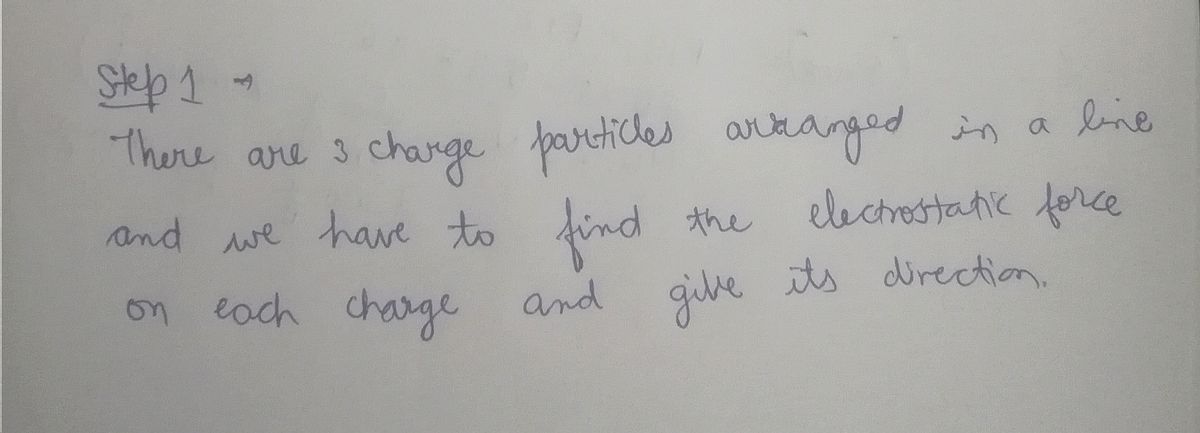 Step 1 →
There are 3 charge particles arranged in a line
and we have to find the electrostatic force
on each charge and give its direction.